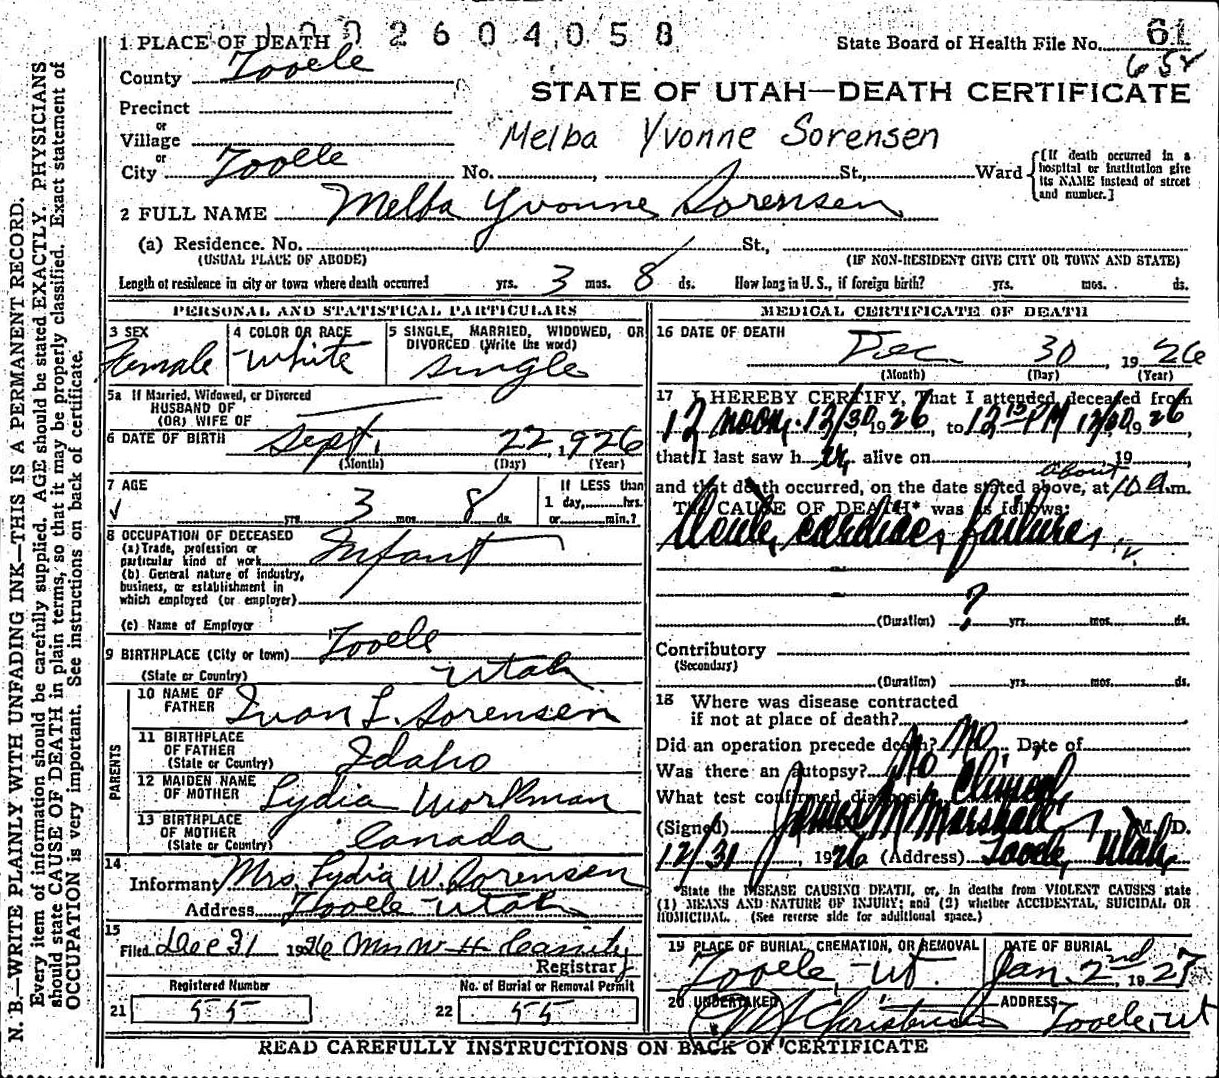 1002604058
State Board of Health File No. 61
658
1 PLACE OF DEATH
County Tooele
STATE OF UTAH—DEATH CERTIFICATE
Precinct
or
Village
Melba Yvonne Sorensen
or
City Tooele No. , St., Ward {[If death occurred in a hospital or institution give its NAME instead of street and number.]
2 FULL NAME Melba Yvonne Sorensen
(a) Residence. No. St.,
(USUAL PLACE OF ABODE) (IF NON-RESIDENT GIVE CITY OR TOWN AND STATE)
Length of residence in city or town where death occurred yrs. 3 mos. 8 ds. How long in U. S., if foreign birth? yrs. mos. ds.
PERSONAL AND STATISTICAL PARTICULARS
3 SEX
Female
4 COLOR OR RACE
White
5 SINGLE, MARRIED, WIDOWED, OR
DIVORCED (Write the word)
single
5a If Married, Widowed, or Divorced
HUSBAND OF
(OR) WIFE OF
6 DATE OF BIRTH Sept. 22, 1926
(Month) (Day) (Year)
7 AGE
yrs. 3 mos. 8 ds.
If LESS than
1 day, hrs.
or min.?
8 OCCUPATION OF DECEASED
(a) Trade, profession or
particular kind of work Infant
(b) General nature of industry,
business, or establishment in
which employed (or employer)
(c) Name of Employer
9 BIRTHPLACE (City or town) Tooele
(State or Country) Utah
PARENTS
10 NAME OF
FATHER Ivan L. Sorensen
11 BIRTHPLACE
OF FATHER
(State or Country) Idaho
12 MAIDEN NAME
OF MOTHER Lydia Workman
13 BIRTHPLACE
OF MOTHER
(State or Country) Canada
14
Informant Mrs. Lydia W. Sorensen
Address Tooele Utah
15
Filed Dec 31 1926 Mrs W H Cassity
Registrar
Registered Number
21 55
No. of Burial or Removal Permit
22 55
MEDICAL CERTIFICATE OF DEATH
16 DATE OF DEATH
Dec 30, 1926
(Month) (Day) (Year)
17 I HEREBY CERTIFY, That I attended deceased from
12 noon, 12/30 1926, to 12 15 PM 12/30 1926,
that I last saw her alive on 19
about
and that death occurred, on the date stated above, at 10 a.m.
THE CAUSE OF DEATH* was as follows:
Acute cardiac failure
(Duration) ? yrs. mos. ds.
Contributory
(Secondary)
(Duration) yrs. mos. ds.
18 Where was disease contracted
if not at place of death?
Did an operation precede death? No. Date of
Was there an autopsy? No
What test confirmed diagnosis? Clinical
(Signed) James M Marshall, M. D.
12/31, 1926 (Address) Tooele, Utah
*State the DISEASE CAUSING DEATH, or, in deaths from VIOLENT CAUSES state
(1) MEANS AND NATURE OF INJURY; and (2) whether ACCIDENTAL, SUICIDAL OR
HOMICIDAL. (See reverse side for additional space.)
19 PLACE OF BURIAL, CREMATION, OR REMOVAL
Tooele, Ut.
DATE OF BURIAL
Jan. 2nd, 1927
20 UNDERTAKER ADDRESS
Tooele, Ut
READ CAREFULLY INSTRUCTIONS ON BACK OF CERTIFICATE
N. B.—WRITE PLAINLY WITH UNFADING INK—THIS IS A PERMANENT RECORD.
Every item of information should be carefully supplied. AGE should be stated EXACTLY. PHYSICIANS
should state CAUSE OF DEATH in plain terms, so that it may be properly classified. Exact statement of
OCCUPATION is very important. See instructions on back of certificate.